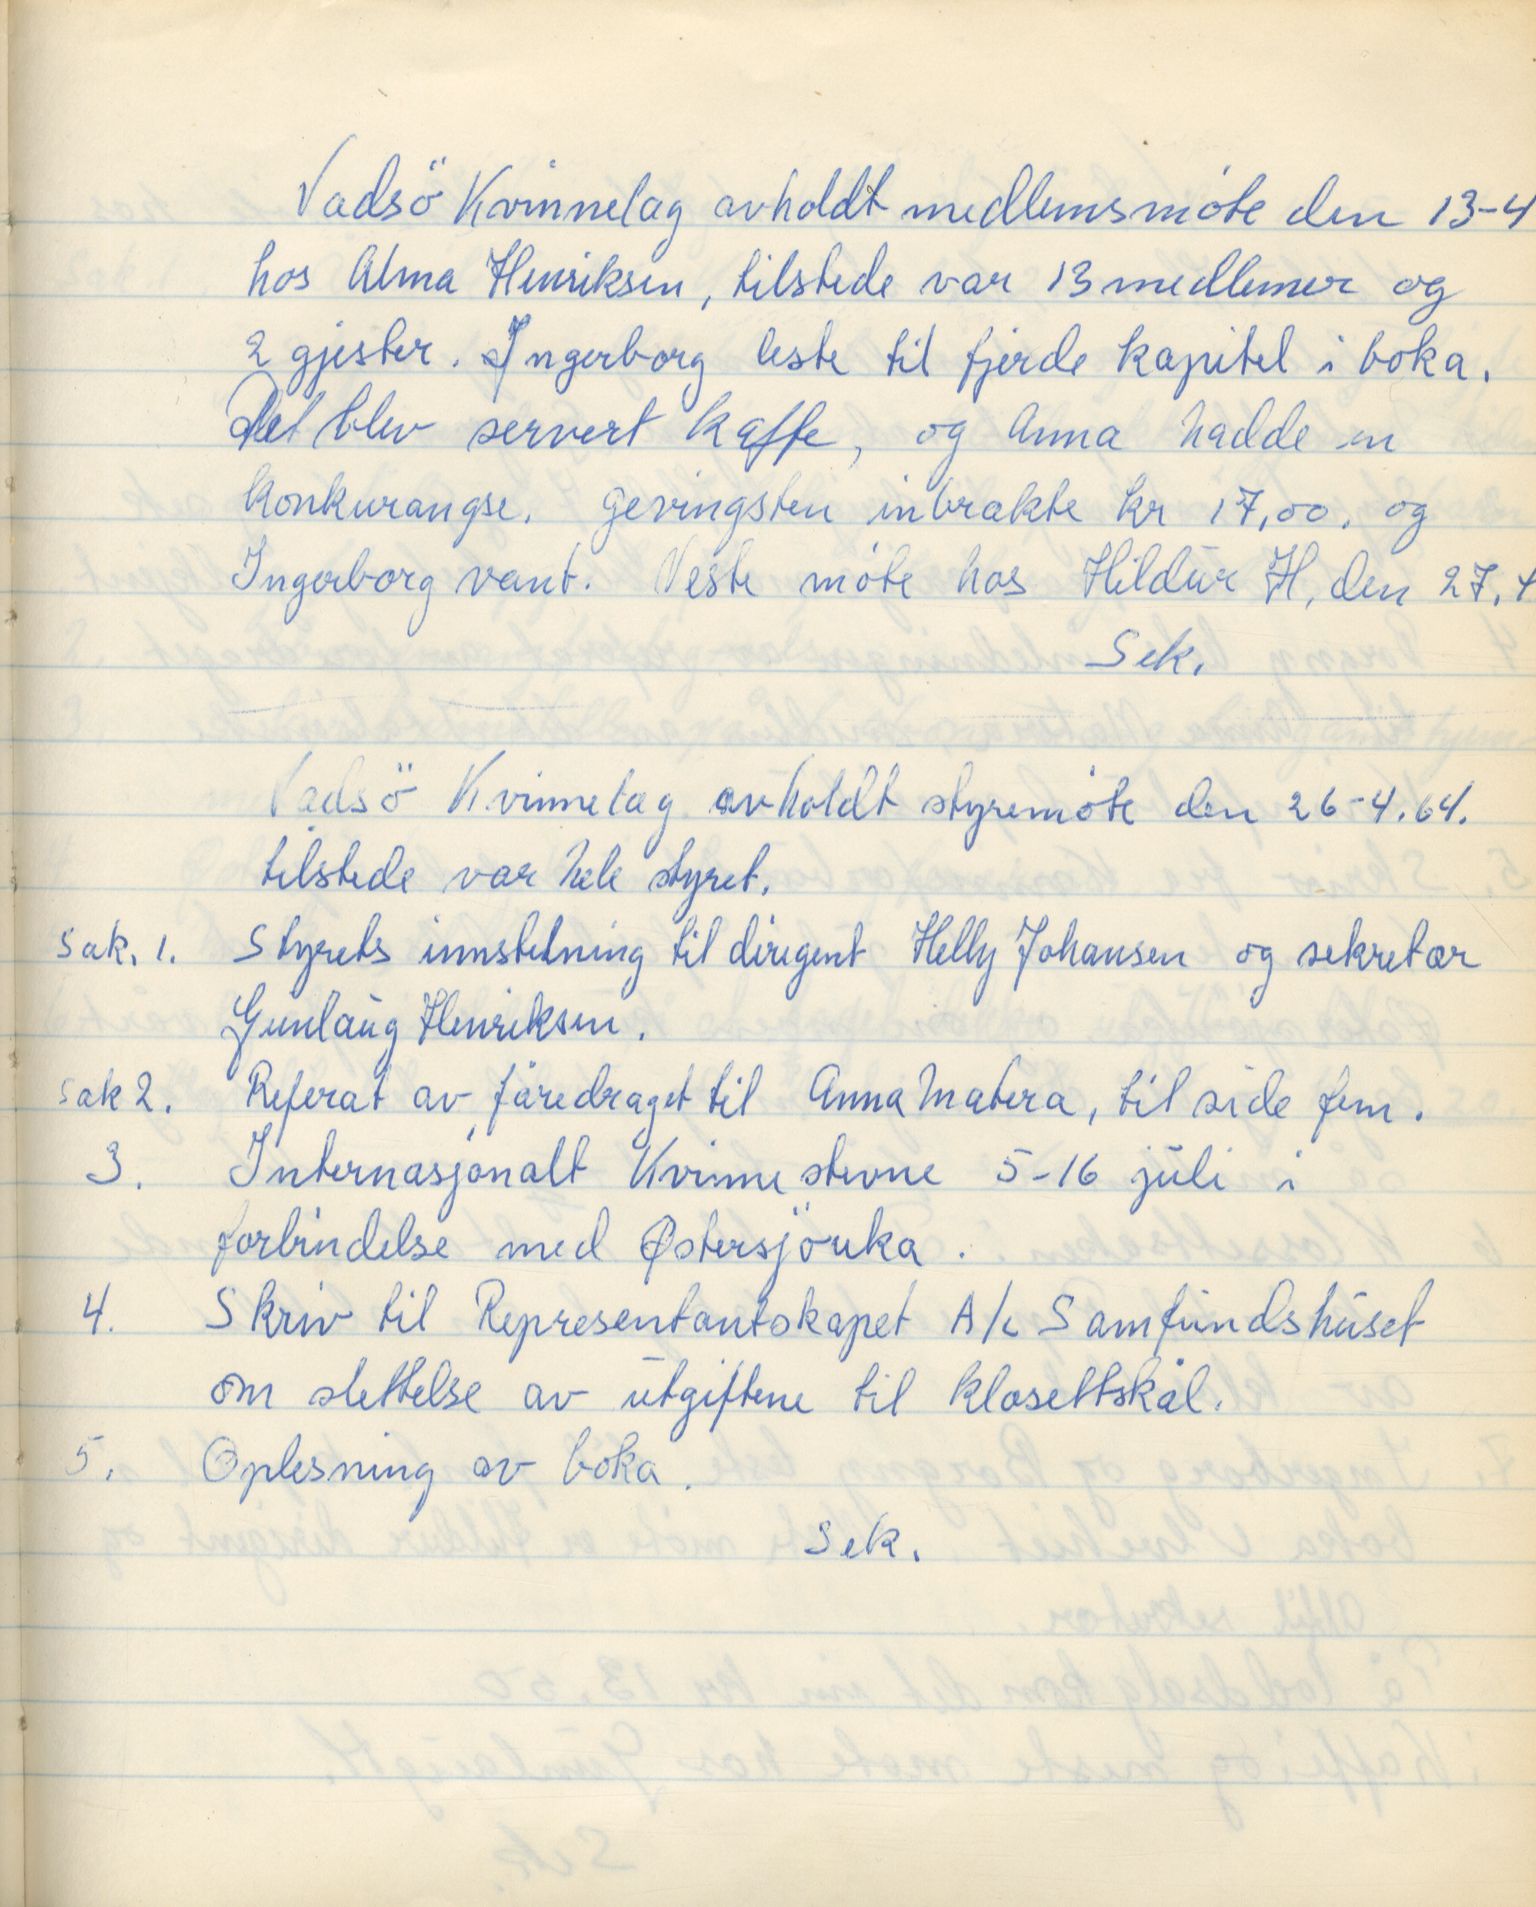 Vadsö Kvinnelag avholdt medlemsmöte den 13-4
hos Alma Henriksen, tilstede var 13 medlemer og
2 gjester. Ingerborg leste til fjerde kapitel i boka.
Det blev servert kaffe, og Anna hadde en
konkurangse. gevingsten inbrakte kr 17,00. og
Ingerborg vant. Neste möte hos Hildur H, den 27.4
Sek.
Vadsö Kvinnelag avholdt styremöte den 26-4.64.
tilstede var hele styret.
Sak. 1. Styrets innstelning til dirigent Helly Johansen og sekretær
Gunlaug Henriksen.
Sak 2. Referat av føredraget til Anna Matera, til side fem.
3. Internasjonalt Kvinne stevne 5-16 juli i
forbindelse med Østersjöuka.
4. Skriv til Representantskapet A/L Samfundshuset
om slettelse av utgiftene til klosettskål.
5. Oplesning av boka.
Sek.